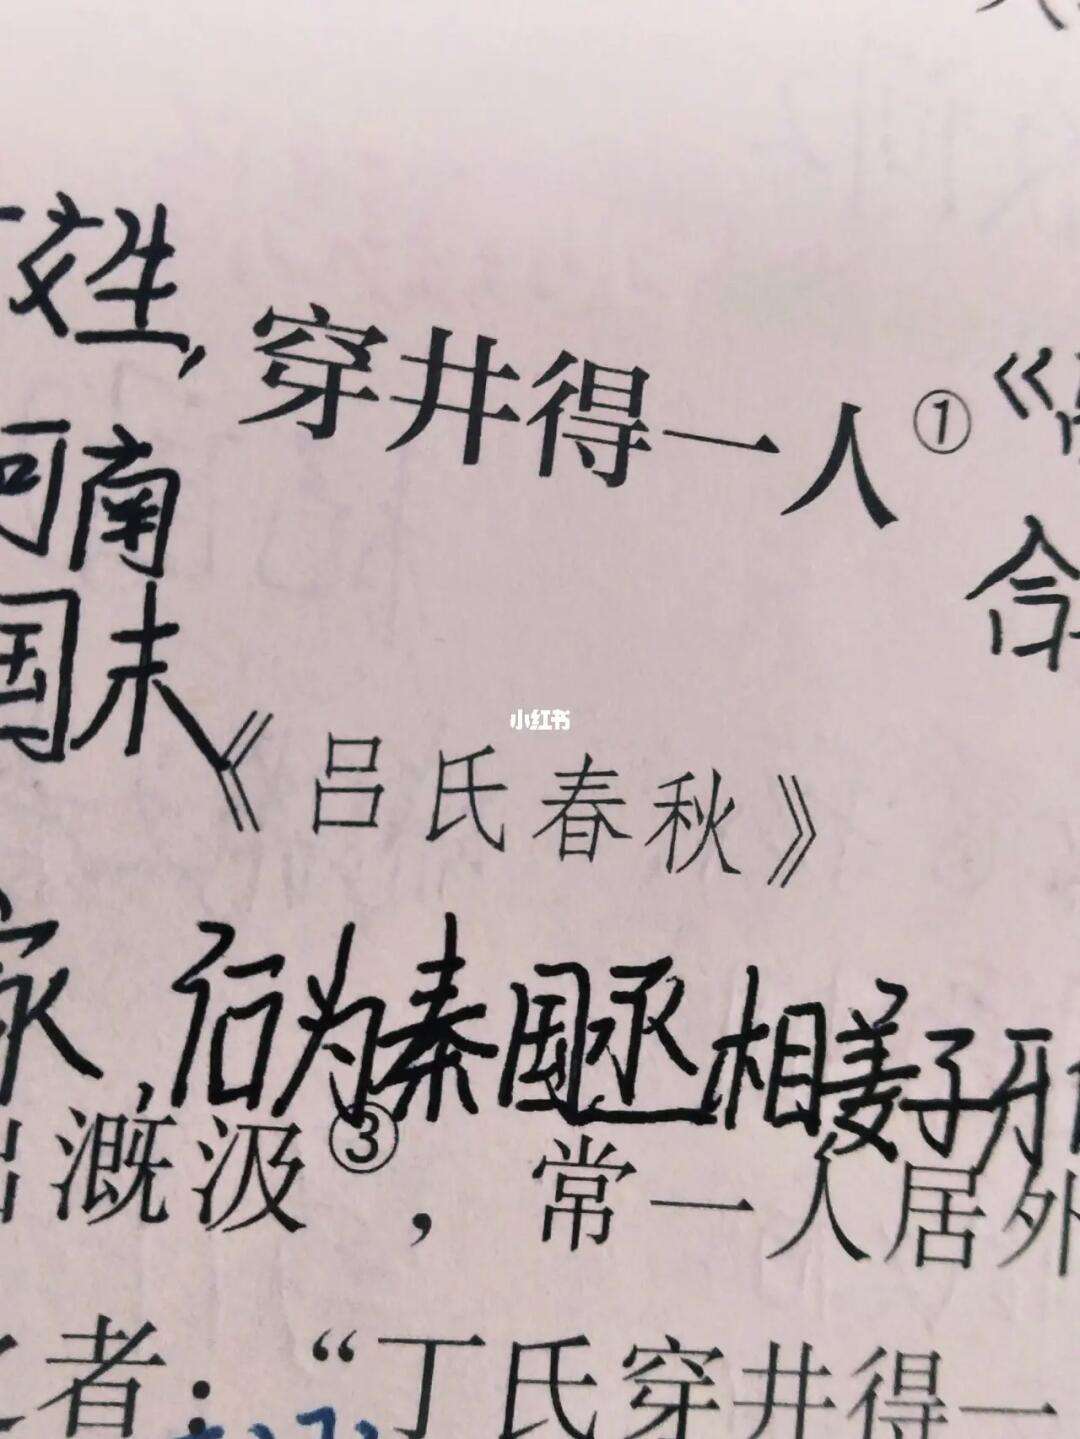 姓,穿井得一人①《
河南
国末
合
小红书
《吕氏春秋》
家,后为秦国丞相姜子牙
出溉汲③,常一人居外
之者:“丁氏穿井得一